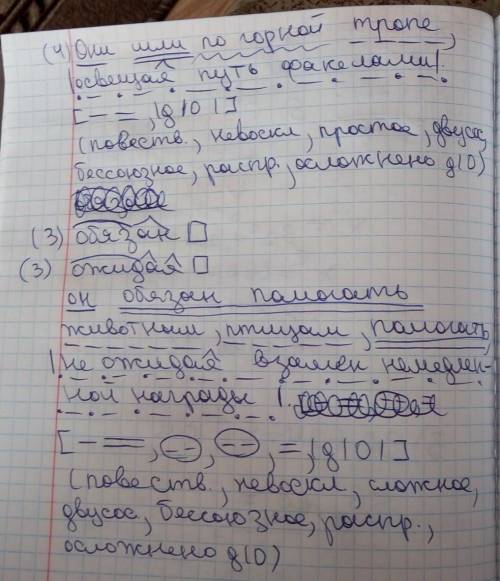 (4) Они шли по горной тропе,
|освещая путь факелами|.
[– =, |д|О|]
(повеств., невоскл, простое, двусос,
бессоюзное, распр., осложнено д(О)
(3) обязан
(3) ожидая
он обязан помогать
животным, птицам, помогать,
|не ожидая взамен немедлен-
ной награды|.
[– =, –, –, =, |д|О|]
(повеств., невоскл, сложное,
двусос, бессоюзное, распр.,
осложнено д(О)